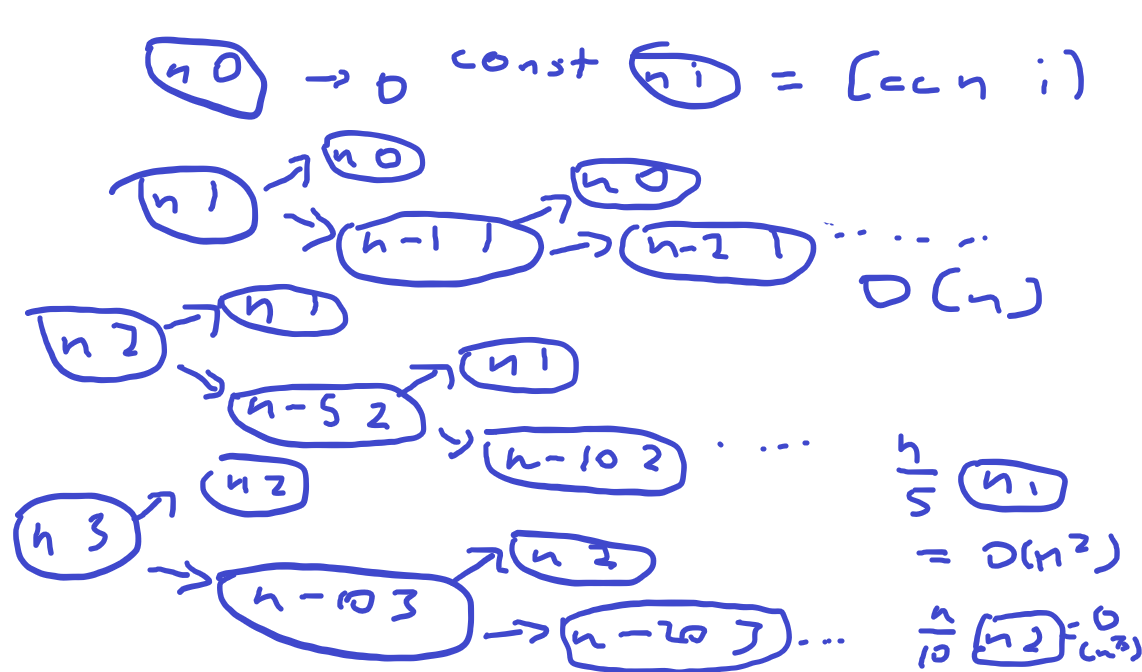 n 0 → 0 const n i = (cc n i)
n 0
n 1
n 0
n-1 1
n-2 1 ......
O(n)
n 1
n 2
n 1
n-5 2
n-10 2 ....
n/5 n 1
= O(n²)
n 2
n 3
n 2
n-10 3
n-20 3 ....
n/10 n 2 = O(n³)